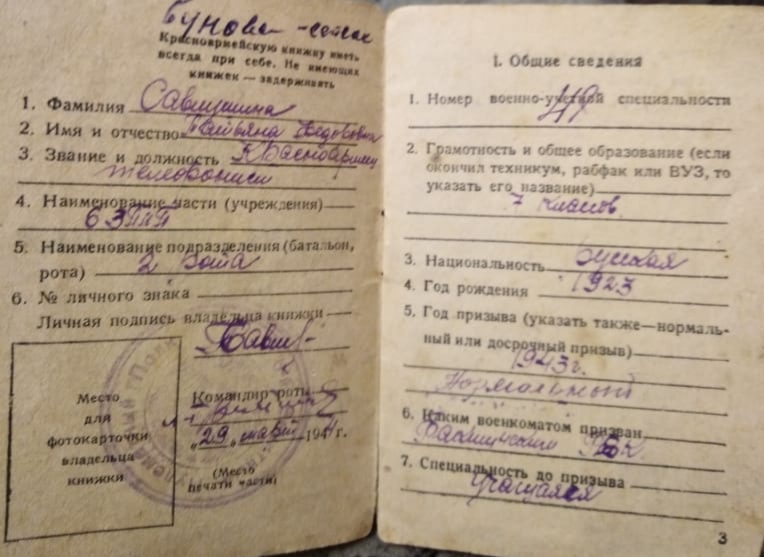 Бунова-
Красноармейскую книжку иметь
всегда при себе. Не имеющих
книжек — задерживать
1. Фамилия Савишкина
2. Имя и отчество Татьяна Федоровна
3. Звание и должность Красноармеец
телефонист
4. Наименование части (учреждения)
63
5. Наименование подразделения (батальон,
рота) 2 рота
6. № личного знака
Личная подпись владельца книжки
Место
для
фотокарточки
владельца
книжки
Командир роты
"29" 194 г.
(Место
печати части)
I. Общие сведения
1. Номер военно-учетной специальности
49
2. Грамотность и общее образование (если
окончил техникум, рабфак или ВУЗ, то
указать его название)
7 классов.
3. Национальность Русская
4. Год рождения 1923
5. Год призыва (указать также—нормаль-
ный или досрочный призыв)
1943г.
Нормальный
6. Каким военкоматом призван
РВК.
7. Специальность до призыва
Учащаяся
3